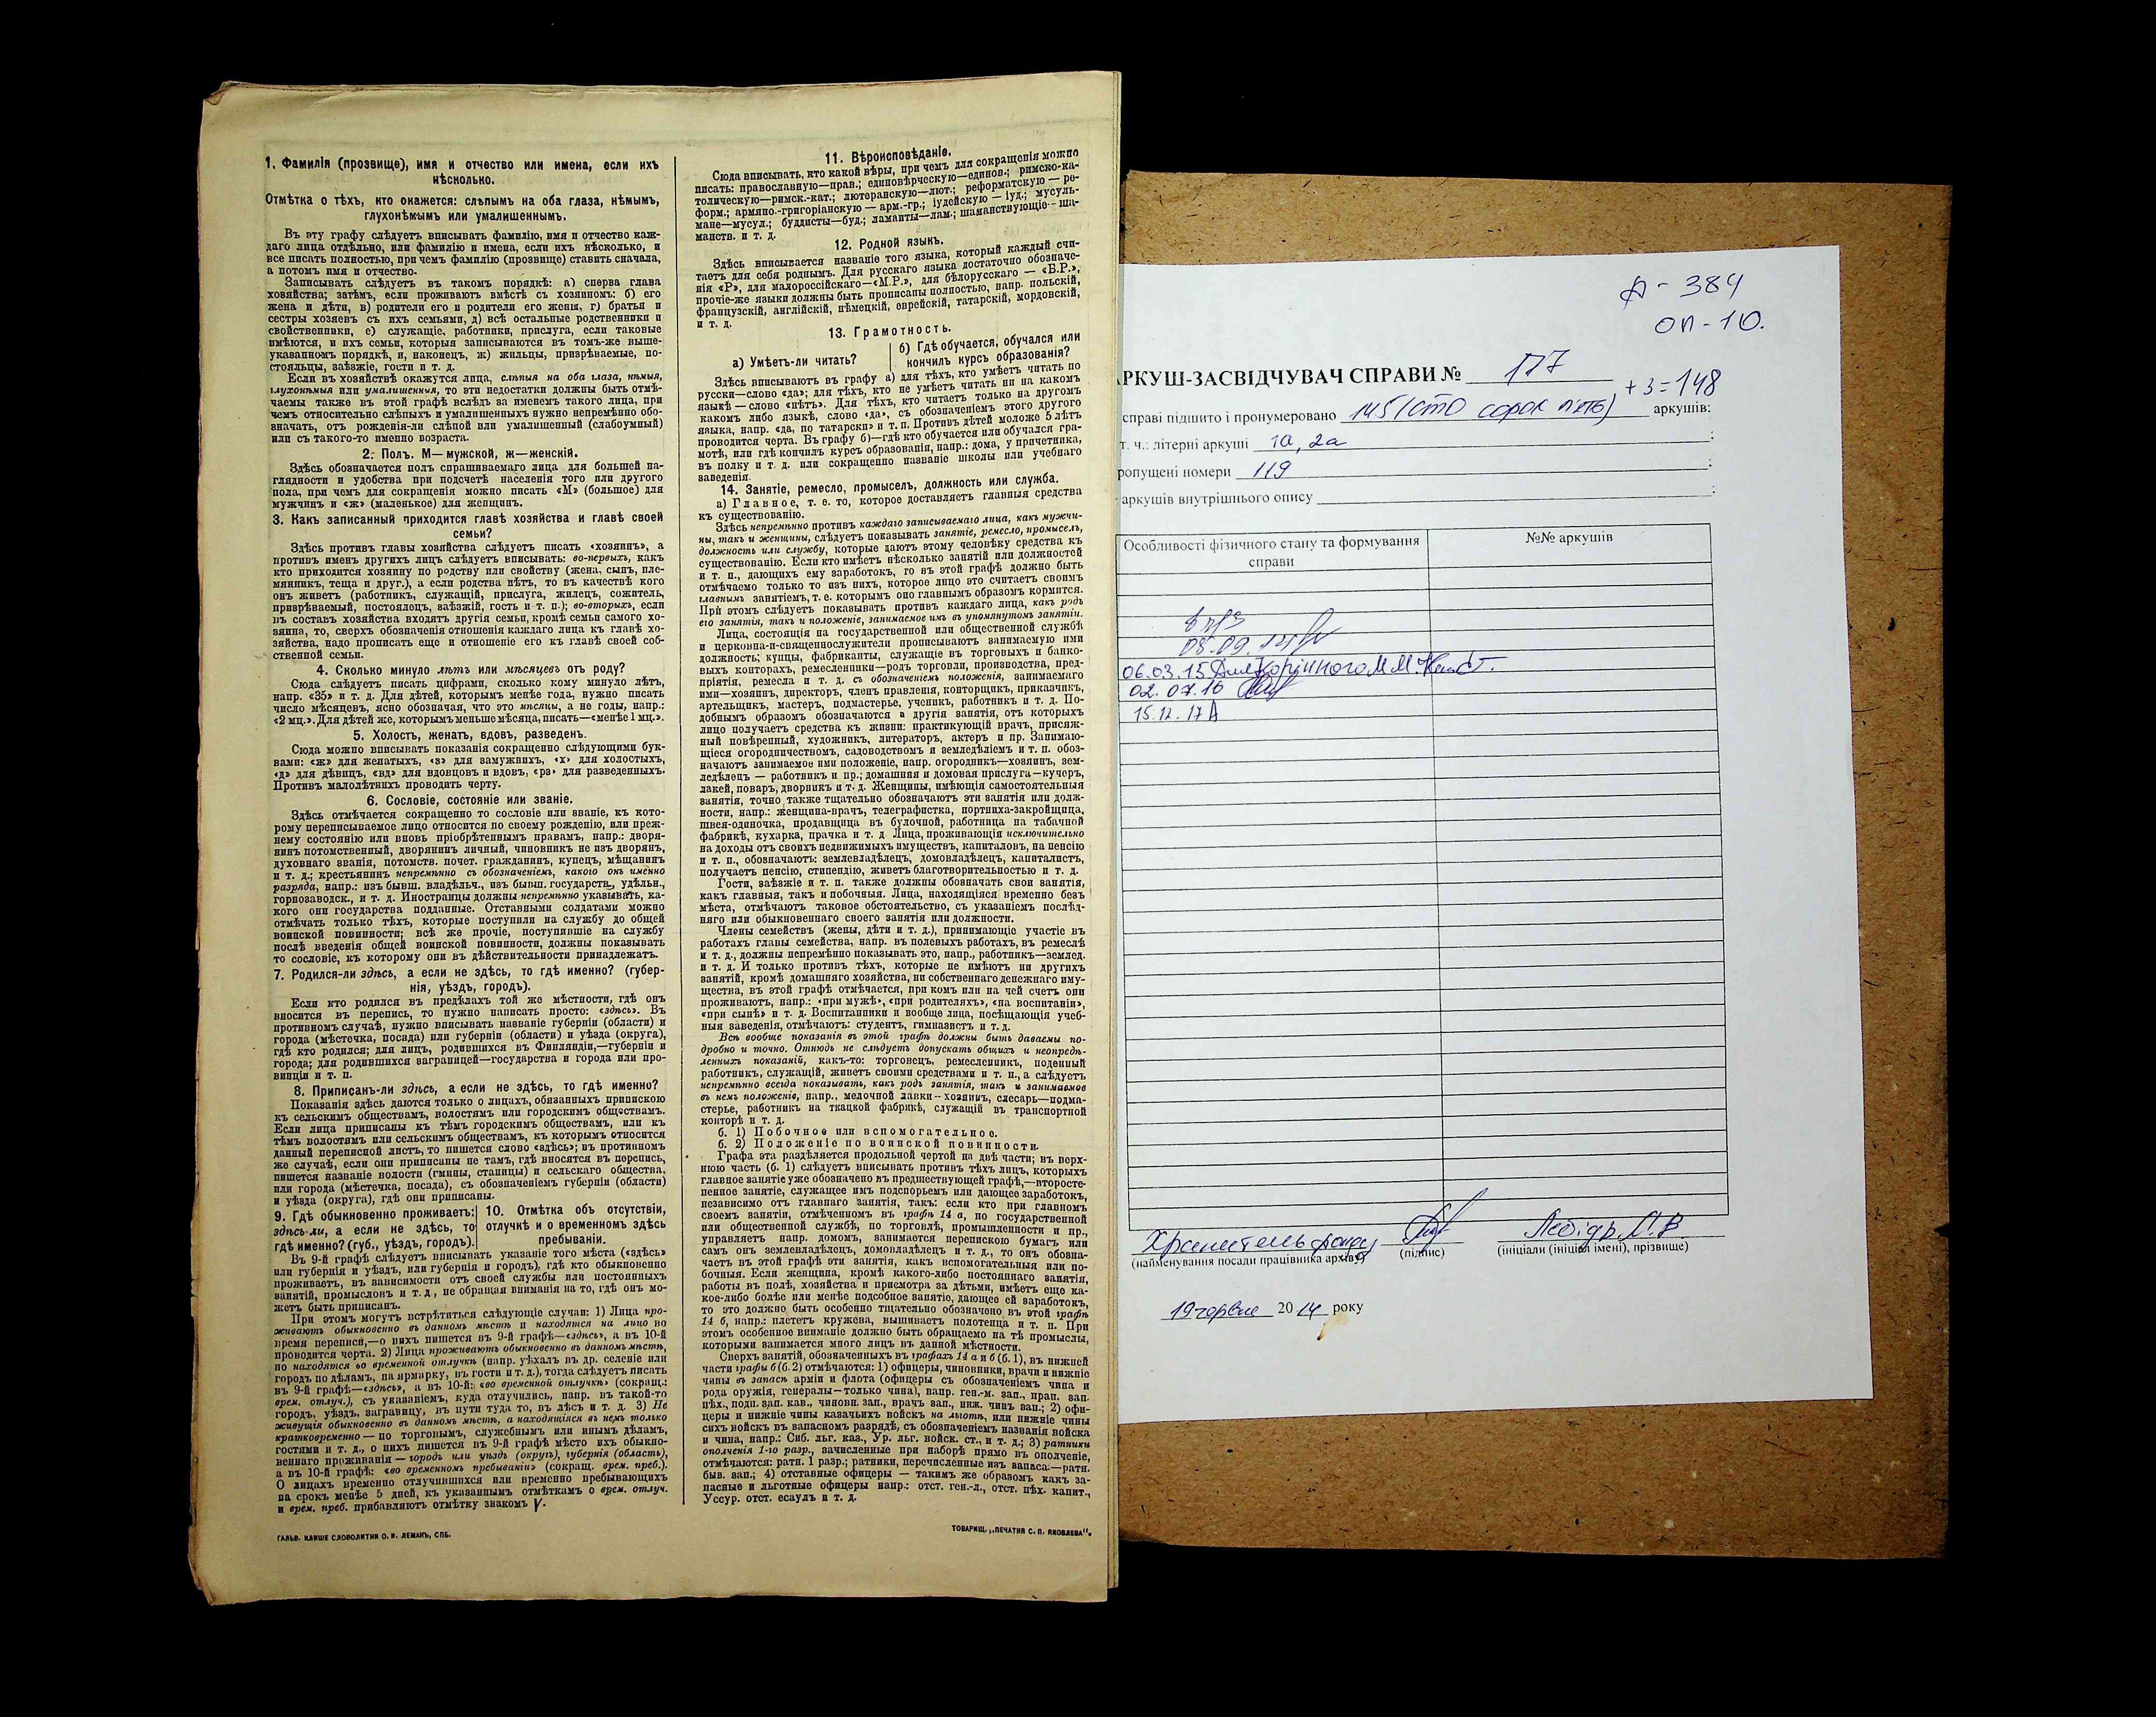 1. Фамилія (прозвище), имя и отчество или имена, если ихъ
нѣсколько.
Отмѣтка о тѣхъ, кто окажется: слѣпымъ на оба глаза, нѣмымъ,
глухонѣмымъ или умалишеннымъ.
Въ эту графу слѣдуетъ вписывать фамилію, имя и отчество каж-
даго лица отдѣльно, или фамилію и имена, если ихъ нѣсколько, и
все писать полностью, при чемъ фамилію (прозвище) ставить сначала,
а потомъ имя и отчество.
Записывать слѣдуетъ въ такомъ порядкѣ: а) сперва глава
хозяйства; затѣмъ, если проживаютъ вмѣстѣ съ хозяиномъ: б) его
жена и дѣти, в) родители его и родители его жены, г) братья и
сестры хозяевъ съ ихъ семьями, д) всѣ остальные родственники и
свойственники, е) служащіе, работники, прислуга, если таковые
имѣются, и ихъ семьи, которыя записываются въ томъ-же выше-
указанномъ порядкѣ, и, наконецъ, ж) жильцы, призрѣваемые, по-
стояльцы, заѣзжіе, гости и т. д.
Если въ хозяйствѣ окажутся лица, слѣпыя на оба глаза, нѣмыя,
глухонѣмыя или умалишенныя, то эти недостатки должны быть отмѣ-
чаемы также въ этой графѣ вслѣдъ за именемъ такого лица, при
чемъ относительно слѣпыхъ и умалишенныхъ нужно непремѣнно обо-
значать, отъ рожденія-ли слѣпой или умалишенный (слабоумный)
или съ такого-то именно возраста.
2. Полъ. М—мужской, ж—женскій.
Здѣсь обозначается полъ спрашиваемаго лица для большей на-
глядности и удобства при подсчетѣ населенія того или другого
пола, при чемъ для сокращенія можно писать «М» (большое) для
мужчинъ и «ж» (маленькое) для женщинъ.
3. Какъ записанный приходится главѣ хозяйства и главѣ своей
семьи?
Здѣсь противъ главы хозяйства слѣдуетъ писать «хозяинъ», а
противъ именъ другихъ лицъ слѣдуетъ вписывать: во-первыхъ, какъ
кто приходится хозяину по родству или свойству (жена, сынъ, пле-
мянникъ, теща и друг.), а если родства нѣтъ, то въ качествѣ кого
онъ живетъ (работникъ, служащій, прислуга, жилецъ, сожитель,
призрѣваемый, постоялецъ, заѣзжій, гость и т. п.); во-вторыхъ, если
въ составъ хозяйства входятъ другія семьи, кромѣ семьи самого хо-
зяина, то, сверхъ обозначенія отношенія каждаго лица къ главѣ хо-
зяйства, надо прописать еще и отношеніе его къ главѣ своей соб-
ственной семьи.
4. Сколько минуло лѣтъ или мѣсяцевъ отъ роду?
Сюда слѣдуетъ писать цифрами, сколько кому минуло лѣтъ,
напр. «35» и т. д. Для дѣтей, которымъ менѣе года, нужно писать
число мѣсяцевъ, ясно обозначая, что это мѣсяцы, а не годы, напр.:
«2 мц.». Для дѣтей же, которымъ меньше мѣсяца, писать—«менѣе 1 мц.».
5. Холостъ, женатъ, вдовъ, разведенъ.
Сюда можно вписывать показанія сокращенно слѣдующими бук-
вами: «ж» для женатыхъ, «з» для замужнихъ, «х» для холостыхъ,
«д» для дѣвицъ, «вд» для вдовцовъ и вдовъ, «рз» для разведенныхъ.
Противъ малолѣтнихъ проводить черту.
6. Сословіе, состояніе или званіе.
Здѣсь отмѣчается сокращенно то сословіе или званіе, къ кото-
рому переписываемое лицо относится по своему рожденію, или преж-
нему состоянію или вновь пріобрѣтеннымъ правамъ, напр.: дворя-
нинъ потомственный, дворянинъ личный, чиновникъ не изъ дворянъ,
духовнаго званія, потомств. почет. гражданинъ, купецъ, мѣщанинъ
и т. д.; крестьянинъ непремѣнно съ обозначеніемъ, какого онъ именно
разряда, напр.: изъ бывш. владѣльч., изъ бывш. государств., удѣльн.,
горнозаводск., и т. д. Иностранцы должны непремѣнно указывать, ка-
кого они государства подданные. Отставными солдатами можно
отмѣчать только тѣхъ, которые поступили на службу до общей
воинской повинности; всѣ же прочіе, поступившіе на службу
послѣ введенія общей воинской повинности, должны показывать
то сословіе, къ которому они въ дѣйствительности принадлежатъ.
7. Родился-ли здѣсь, а если не здѣсь, то гдѣ именно? (губер-
нія, уѣздъ, городъ).
Если кто родился въ предѣлахъ той же мѣстности, гдѣ онъ
вносится въ перепись, то нужно написать просто: «здѣсь». Въ
противномъ случаѣ, нужно вписывать названіе губерніи (области) и
города (мѣстечка, посада) или губерніи (области) и уѣзда (округа),
гдѣ кто родился; для лицъ, родившихся въ Финляндіи,—губерніи и
города; для родившихся заграницей—государства и города или про-
винціи и т. п.
8. Приписанъ-ли здѣсь, а если не здѣсь, то гдѣ именно?
Показанія здѣсь даются только о лицахъ, обязанныхъ припискою
къ сельскимъ обществамъ, волостямъ или городскимъ обществамъ.
Если лица приписаны къ тѣмъ городскимъ обществамъ, или къ
тѣмъ волостямъ или сельскимъ обществамъ, къ которымъ относится
данный переписной листъ, то пишется слово «здѣсь»; въ противномъ
же случаѣ, если они приписаны не тамъ, гдѣ вносятся въ перепись,
пишется названіе волости (гмины, станицы) и сельскаго общества,
или города (мѣстечка, посада), съ обозначеніемъ губерніи (области)
и уѣзда (округа), гдѣ они приписаны.
9. Гдѣ обыкновенно проживаетъ:
здѣсь-ли, а если не здѣсь, то
гдѣ именно? (губ., уѣздъ, городъ).
10. Отмѣтка объ отсутствіи,
отлучкѣ и о временномъ здѣсь
пребываніи.
Въ 9-й графѣ слѣдуетъ вписывать указаніе того мѣста («здѣсь»
или губернія и уѣздъ, или губернія и городъ), гдѣ кто обыкновенно
проживаетъ, въ зависимости отъ своей службы или постоянныхъ
занятій, промысловъ и т. д., не обращая вниманія на то, гдѣ онъ мо-
жетъ быть приписанъ.
При этомъ могутъ встрѣтиться слѣдующіе случаи: 1) Лица про-
живаютъ обыкновенно въ данномъ мѣстѣ и находятся на лицо во
время переписи,—о нихъ пишется въ 9-й графѣ—«здѣсь», а въ 10-й
проводится черта. 2) Лица проживаютъ обыкновенно въ данномъ мѣстѣ,
но находятся во временной отлучкѣ (напр. уѣхалъ въ др. селеніе или
городъ по дѣламъ, на ярмарку, въ гости и т. д.), тогда слѣдуетъ писать
въ 9-й графѣ—«здѣсь», а въ 10-й: «во временной отлучкѣ» (сокращ.:
врем. отлуч.), съ указаніемъ, куда отлучились, напр. въ такой-то
городъ, уѣздъ, заграницу, въ пути туда то, въ лѣсъ и т. д. 3) Не
живущія обыкновенно въ данномъ мѣстѣ, а находящіяся въ немъ только
кратковременно — по торговымъ, служебнымъ или инымъ дѣламъ,
гостями и т. д., о нихъ пишется въ 9-й графѣ мѣсто ихъ обыкно-
веннаго проживанія — городъ или уѣздъ (округъ), губернія (область),
а въ 10-й графѣ: «во временномъ пребываніи» (сокращ. врем. преб.).
О лицахъ временно отлучившихся или временно пребывающихъ
на срокъ менѣе 5 дней, къ указаннымъ отмѣткамъ о врем. отлуч.
и врем. преб. прибавляютъ отмѣтку знакомъ V.
ГАЛЬВ. КЛИШЕ СЛОВОЛИТНИ О. И. ЛЕМАНЪ, СПБ.
11. Вѣроисповѣданіе.
Сюда вписывать, кто какой вѣры, при чемъ для сокращенія можно
писать: православную—прав.; единовѣрческую—единов.; римско-ка-
толическую—римск.-кат.; лютеранскую—лют.; реформатскую — ре-
форм.; армяно.-григоріанскую — арм.-гр.; іудейскую — іуд.; мусуль-
мане—мусул.; буддисты—буд.; ламаиты—лам.; шаманствующіе— ша-
манств. и т. д.
12. Родной языкъ.
Здѣсь вписывается названіе того языка, который каждый счи-
таетъ для себя роднымъ. Для русскаго языка достаточно обозначе-
нія «Р», для малороссійскаго—«М.Р.», для бѣлорусскаго — «Б.Р.»,
прочіе-же языки должны быть прописаны полностью, напр. польскій,
французскій, англійскій, нѣмецкій, еврейскій, татарскій, мордовскій,
и т. д.
13. Грамотность.
а) Умѣетъ-ли читать?
б) Гдѣ обучается, обучался или
кончилъ курсъ образованія?
Здѣсь вписываютъ въ графу а) для тѣхъ, кто умѣетъ читать по
русски—слово «да»; для тѣхъ, кто не умѣетъ читать ни на какомъ
языкѣ — слово «нѣтъ». Для тѣхъ, кто читаетъ только на другомъ
какомъ либо языкѣ, слово «да», съ обозначеніемъ этого другого
языка, напр. «да, по татарски» и т. п. Противъ дѣтей моложе 5 лѣтъ
проводится черта. Въ графу б)—гдѣ кто обучается или обучался гра-
мотѣ, или гдѣ кончилъ курсъ образованія, напр.: дома, у причетника,
въ полку и т. д. или сокращенно названіе школы или учебнаго
заведенія.
14. Занятіе, ремесло, промыселъ, должность или служба.
а) Главное, т. е. то, которое доставляетъ главныя средства
къ существованію.
Здѣсь непремѣнно противъ каждаго записываемаго лица, какъ мужчи-
ны, такъ и женщины, слѣдуетъ показывать занятіе, ремесло, промыселъ,
должность или службу, которые даютъ этому человѣку средства къ
существованію. Если кто имѣетъ нѣсколько занятій или должностей
и т. п., дающихъ ему заработокъ, то въ этой графѣ должно быть
отмѣчаемо только то изъ нихъ, которое лицо это считаетъ своимъ
главнымъ занятіемъ, т. е. которымъ оно главнымъ образомъ кормится.
При этомъ слѣдуетъ показывать противъ каждаго лица, какъ родъ
его занятія, такъ и положеніе, занимаемое имъ въ упомянутомъ занятіи.
Лица, состоящія на государственной или общественной службѣ
и церковно-и-священнослужители прописываютъ занимаемую ими
должность; купцы, фабриканты, служащіе въ торговыхъ и банко-
выхъ конторахъ, ремесленники—родъ торговли, производства, пред-
пріятія, ремесла и т. д. съ обозначеніемъ положенія, занимаемаго
ими—хозяинъ, директоръ, членъ правленія, конторщикъ, приказчикъ,
артельщикъ, мастеръ, подмастерье, ученикъ, работникъ и т. д. По-
добнымъ образомъ обозначаются и другія занятія, отъ которыхъ
лицо получаетъ средства къ жизни: практикующій врачъ, присяж-
ный повѣренный, художникъ, литераторъ, актеръ и пр. Занимаю-
щіеся огородничествомъ, садоводствомъ и земледѣліемъ и т. п. обоз-
начаютъ занимаемое ими положеніе, напр. огородникъ—хозяинъ, зем-
ледѣлецъ — работникъ и пр.; домашняя и домовая прислуга—кучеръ,
лакей, поваръ, дворникъ и т. д. Женщины, имѣющія самостоятельныя
занятія, точно также тщательно обозначаютъ эти занятія или долж-
ности, напр.: женщина-врачъ, телеграфистка, портниха-закройщица,
швея-одиночка, продавщица въ булочной, работница на табачной
фабрикѣ, кухарка, прачка и т. д. Лица, проживающія исключительно
на доходы отъ своихъ недвижимыхъ имуществъ, капиталовъ, на пенсію
и т. п., обозначаютъ: землевладѣлецъ, домовладѣлецъ, капиталистъ,
получаетъ пенсію, стипендію, живетъ благотворительностью и т. д.
Гости, заѣзжіе и т. п. также должны обозначать свои занятія,
какъ главныя, такъ и побочныя. Лица, находящіяся временно безъ
мѣста, отмѣчаютъ таковое обстоятельство, съ указаніемъ послѣд-
няго или обыкновеннаго своего занятія или должности.
Члены семействъ (жены, дѣти и т. д.), принимающіе участіе въ
работахъ главы семейства, напр. въ полевыхъ работахъ, въ ремеслѣ
и т. д., должны непремѣнно показывать это, напр., работникъ—землед.
и т. д. И только противъ тѣхъ, которые не имѣютъ ни другихъ
занятій, кромѣ домашняго хозяйства, ни собственнаго денежнаго иму-
щества, въ этой графѣ отмѣчается, при комъ или на чей счетъ они
проживаютъ, напр.: «при мужѣ», «при родителяхъ», «на воспитаніи»,
«при сынѣ» и т. д. Воспитанники и вообще лица, посѣщающія учеб-
ныя заведенія, отмѣчаютъ: студентъ, гимназистъ и т. д.
Всѣ вообще показанія въ этой графѣ должны быть даваемы по-
дробно и точно. Отнюдь не слѣдуетъ допускать общихъ и неопредѣ-
ленныхъ показаній, какъ-то: торговецъ, ремесленникъ, поденный
работникъ, служащій, живетъ своими средствами и т. п., а слѣдуетъ
непремѣнно всегда показывать, какъ родъ занятія, такъ и занимаемое
въ немъ положеніе, напр., мелочной лавки—хозяинъ, слесарь—подма-
стерье, работникъ на ткацкой фабрикѣ, служащій въ транспортной
конторѣ и т. д.
б. 1) Побочное или вспомогательное.
б. 2) Положеніе по воинской повинности.
Графа эта раздѣляется продольной чертой на двѣ части; въ верх-
нюю часть (б. 1) слѣдуетъ вписывать противъ тѣхъ лицъ, которыхъ
главное занятіе уже обозначено въ предшествующей графѣ,—второсте-
пенное занятіе, служащее имъ подспорьемъ или дающее заработокъ,
независимо отъ главнаго занятія, такъ: если кто при главномъ
своемъ занятіи, отмѣченномъ въ графѣ 14 а, по государственной
или общественной службѣ, по торговлѣ, промышленности и пр.,
управляетъ напр. домомъ, занимается перепискою бумагъ или
самъ онъ землевладѣлецъ, домовладѣлецъ и т. д., то онъ обозна-
чаетъ въ этой графѣ эти занятія, какъ вспомогательныя или по-
бочныя. Если женщина, кромѣ какого-либо постояннаго занятія,
работы въ полѣ, хозяйства и присмотра за дѣтьми, имѣетъ еще ка-
кое-либо болѣе или менѣе подсобное занятіе, дающее ей заработокъ,
то это должно быть особенно тщательно обозначено въ этой графѣ
14 б, напр.: плететъ кружева, вышиваетъ полотенца и т. п. При
этомъ особенное вниманіе должно быть обращаемо на тѣ промыслы,
которыми занимается много лицъ въ данной мѣстности.
Сверхъ занятій, обозначенныхъ въ графахъ 14 а и б (б. 1), въ нижней
части графы б (б. 2) отмѣчаются: 1) офицеры, чиновники, врачи и нижніе
чины въ запасѣ арміи и флота (офицеры съ обозначеніемъ чина и
рода оружія, генералы—только чина), напр. ген.-м. зап., прап. зап.
пѣх., подп. зап. кав., чиновн. зап., врачъ зап., ниж. чинъ зап.; 2) офи-
церы и нижніе чины казачьихъ войскъ на льготѣ, или нижніе чины
сихъ войскъ въ запасномъ разрядѣ, съ обозначеніемъ названія войска
и чина, напр.: Сиб. льг. каз., Ур. льг. войск. ст., и т. д.; 3) ратники
ополченія 1-го разр., зачисленные при наборѣ прямо въ ополченіе,
отмѣчаются: ратн. 1 разр.; ратники, перечисленные изъ запаса:—ратн.
быв. зап.; 4) отставные офицеры — такимъ же образомъ какъ за-
пасные и льготные офицеры напр.: отст. ген.-л., отст. пѣх. капит.,
Уссур. отст. есаулъ и т. д.
ТОВАРИЩ. „ПЕЧАТНЯ С. П. ЯКОВЛЕВА".
ф - 384
оп - 10.
АРКУШ-ЗАСВІДЧУВАЧ СПРАВИ № 177
+ 3 = 148
справі підшито і пронумеровано 145 (сто сорок п'ять) аркушів;
т. ч.: літерні аркуші 1а, 2а ;
ропущені номери 119 ;
аркушів внутрішнього опису ;
Особливості фізичного стану та формування
справи
№№ аркушів
08.09.14
06.03.15 Для Корінного М.М.
02.07.16
15.12.17
Хранитель фонду
(найменування посади працівника архіву)
(підпис)
(ініціали (ініціал імені), прізвище)
19 червня 2014 року